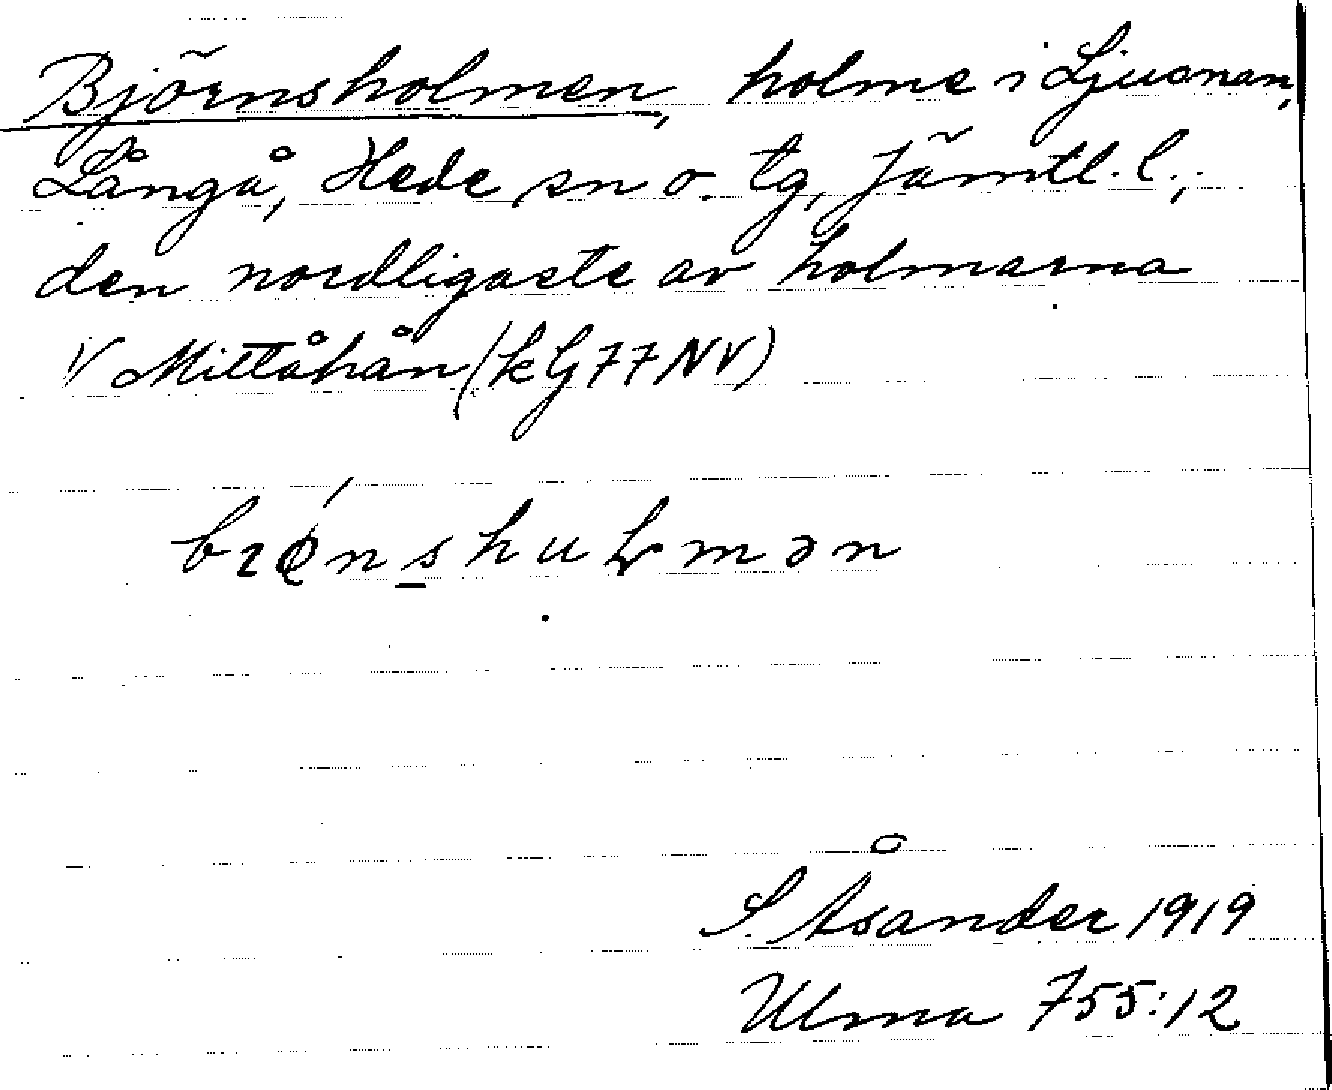 Björnsholmen, holme i Ljusnan,
Långå, Hede sn o. tg, Jämtl. l.;
den nordligaste av holmarna
V Mittåhån (kG77NV)
S. Åsander 1919
Ulma 755:12